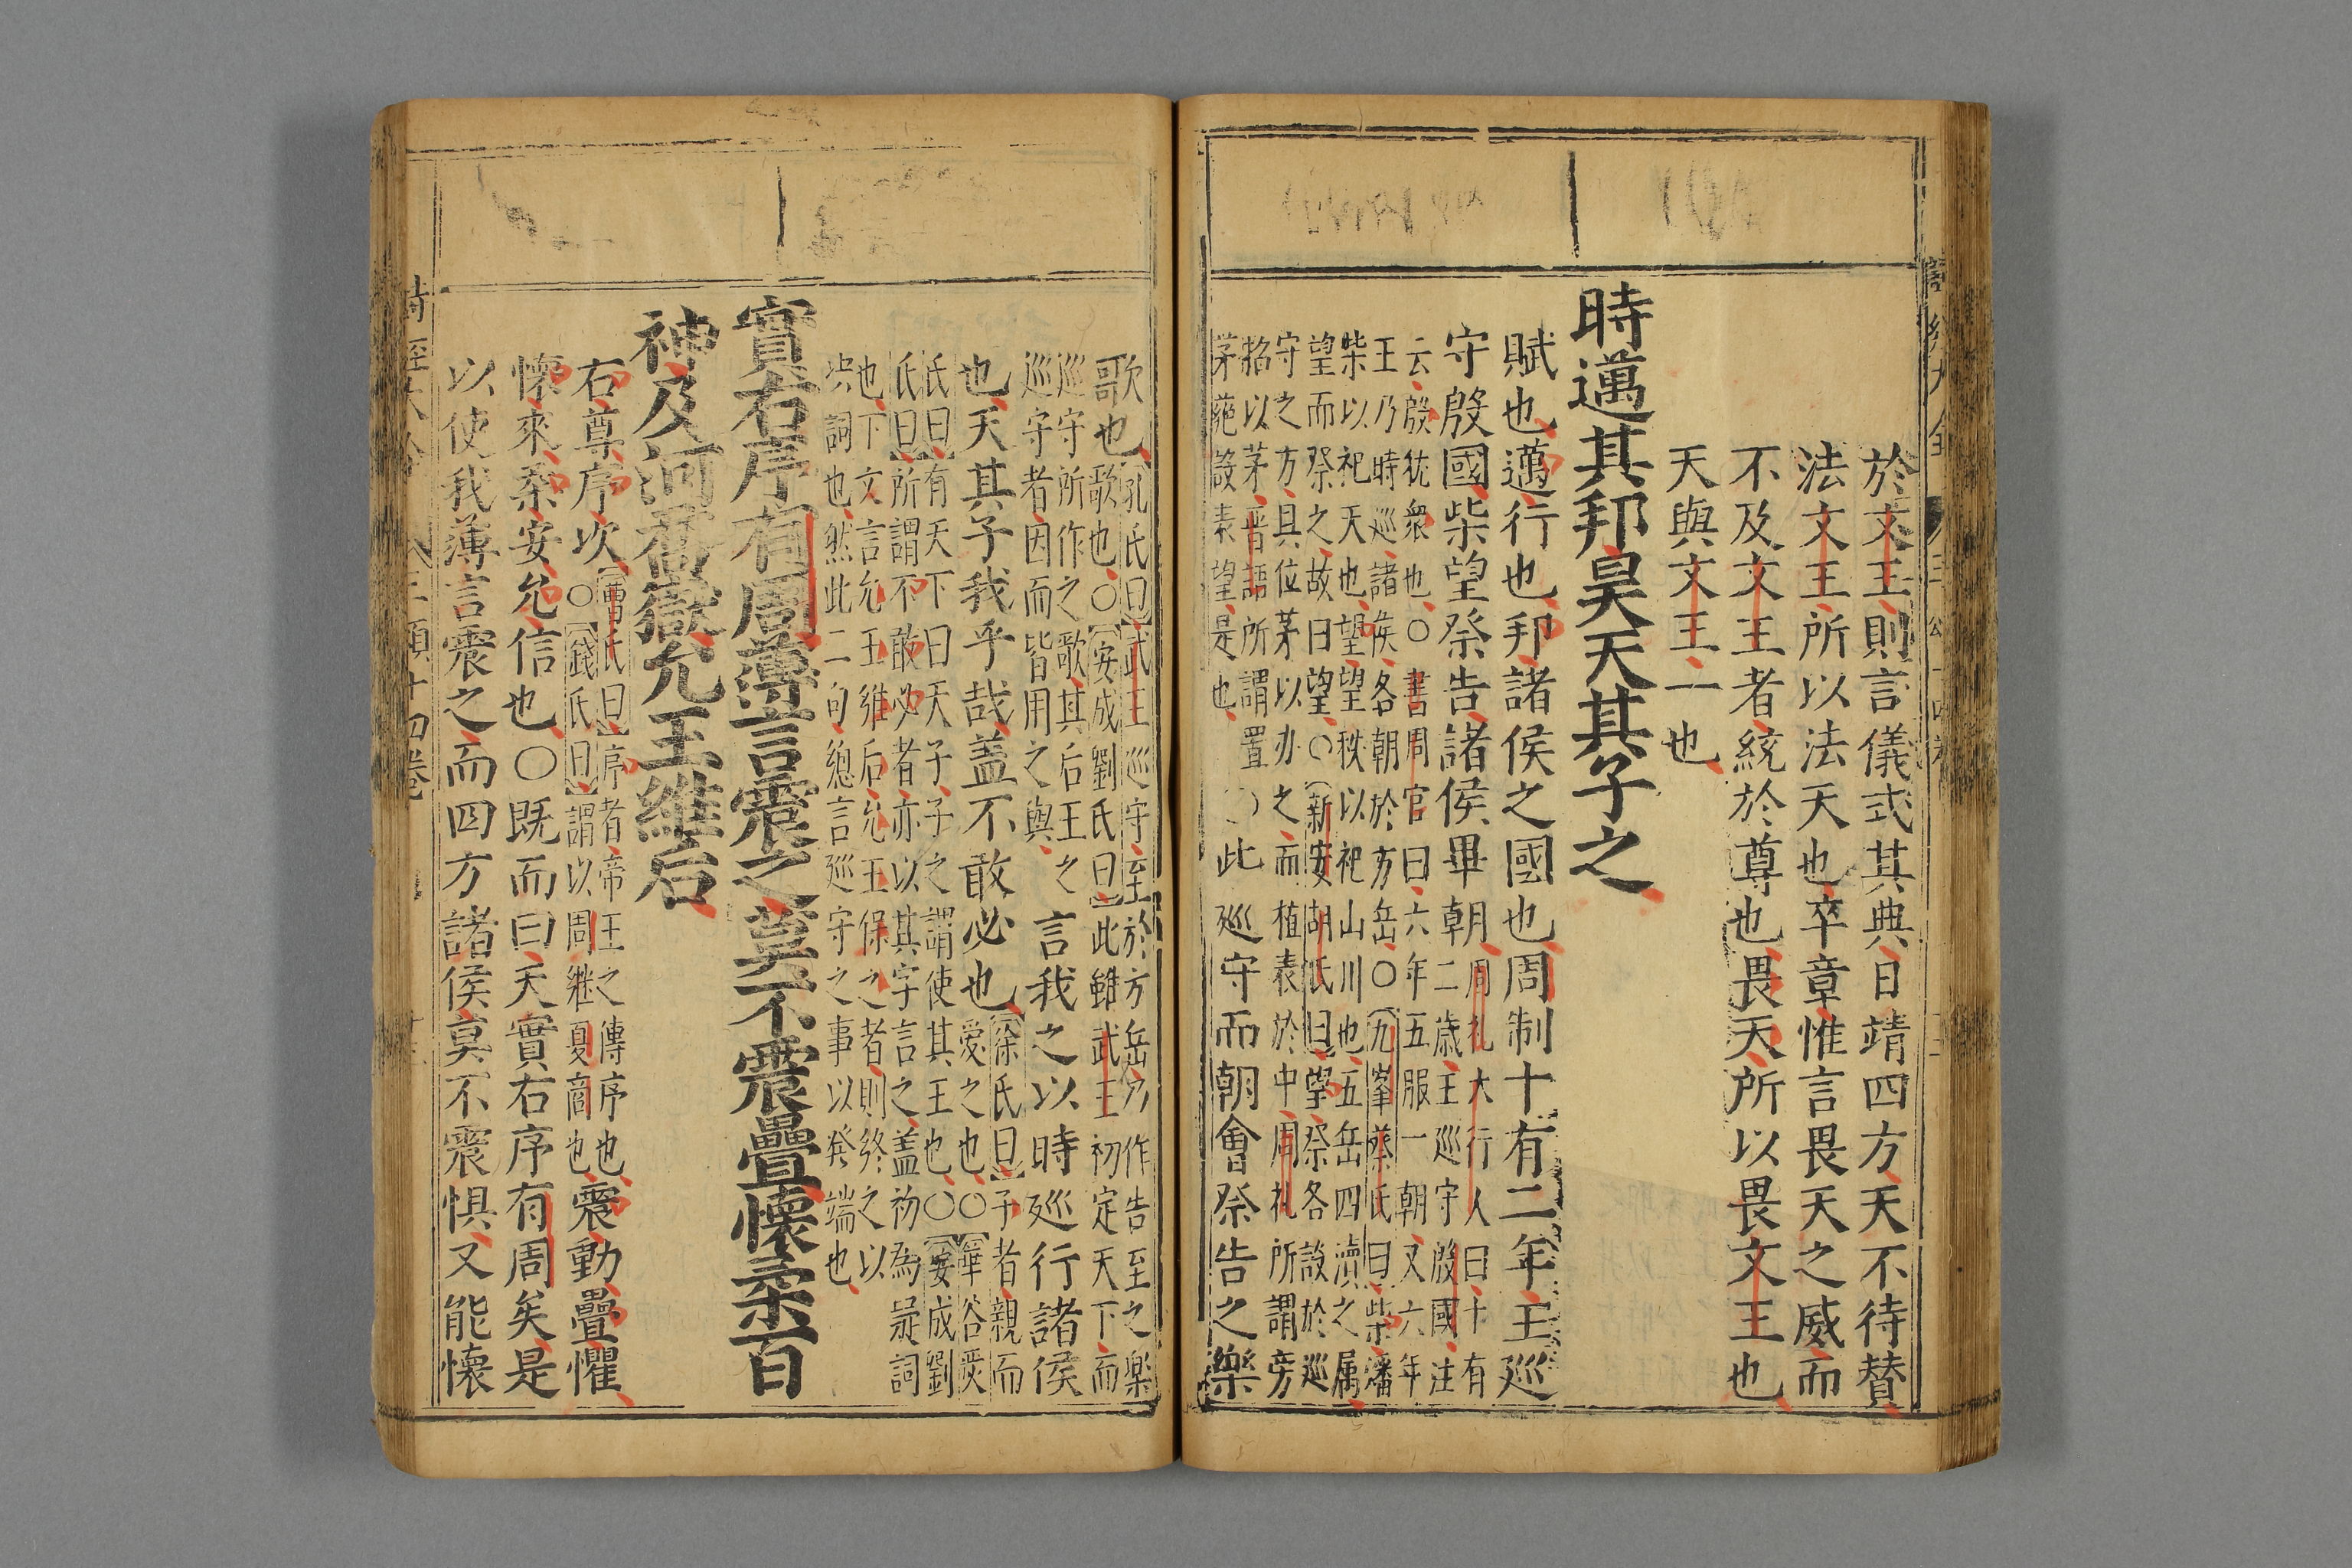 於文王則言儀式其典日靖四方天不待賛
法文王所以法天也卒章惟言畏天之威而
不及文王者統於尊也畏天所以畏文王也
天與文王一也
時邁其邦昊天其子之
賦也邁行也邦諸侯之國也周制十有二年王巡
守殷國柴望祭告諸侯畢朝
周礼大行人曰十有
二歳王巡守殷國注
云殷犹衆也○書周官曰六年五服一朝又六年
王乃時巡諸侯各朝於方岳○九峯蔡氏曰柴燔
柴以祀天也望望秩以祀山川也五岳四瀆之属
望而祭之故曰望○新安胡氏曰學祭各設於巡
守之方具位茅以办之而植表於中周礼所謂旁
招以茅晉語所謂置
茅蕝設表望是也
○此巡守而朝會祭告之樂
歌也
孔氏曰武王巡守至於方岳乃作告至之楽
歌也○安成劉氏曰此雖武王初定天下而
巡守所作之歌其后王之
巡守者因而皆用之與
言我之以時巡行諸侯
也天其子我乎哉盖不敢必也
徐氏曰子者親而
愛之也○華谷嚴
氏曰有天下曰天子子之謂使其王也○安成劉
氏曰所謂不敢必者亦以其字言之盖初為疑詞
也下文言允王維后允王保之者則終之以
决詞也然此二句總言巡守之事以發端也
實右序有周薄言震之莫不震疊懷柔百
神及河喬嶽允王維后
右尊序次○
曹氏曰序者帝王之傳序也
錢氏曰謂以周継夏商也
震動疊懼
懷來柔安允信也○既而曰天實右序有周矣是
以使我薄言震之而四方諸侯莫不震惧又能懷